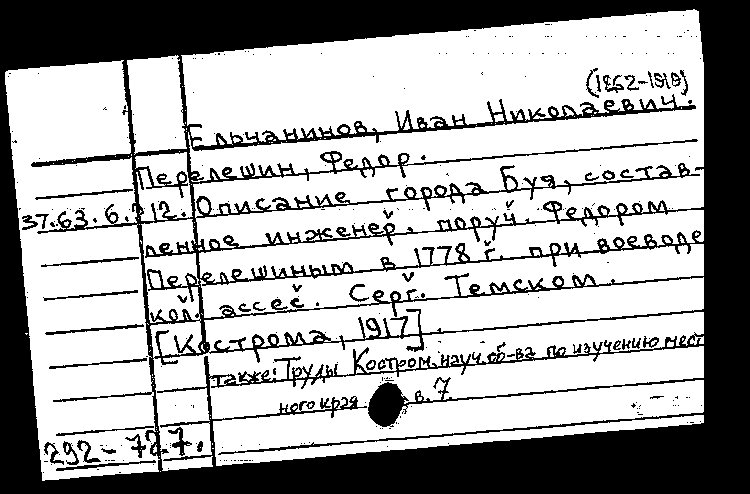 (1862-1919)
Ельчанинов, Иван Николаевич.
Перелешин, Федор.
37.63.6.212. Описание города Буя, состав-
ленное инженер. поруч. Федором
Перелешиным в 1778 г. при воеводе
кол. ассес. Серг. Темском.
[Кострома, 1917].
также: Труды Костром. науч. об-ва по изучению мест
ного края в. 7
292-727.